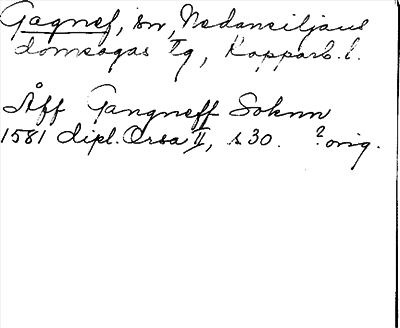 Gagnef, sn, Nedansiljans
domsagas tg, Kopparb. l.
Åff Gangneff Soknn
1581 dipl. Orsa II, s 30. ? orig.